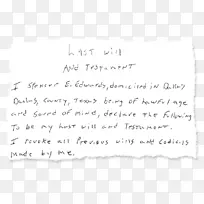 Last Will
AND TesTAmenT
I Spencer E. Edwards, domiciled in Dallas
Dallas, County, Texas being of Lawful age
and sound of mind, declare the following
To be my Last will and Testament.
I revoke all Previous wills and Codicils
made by me.